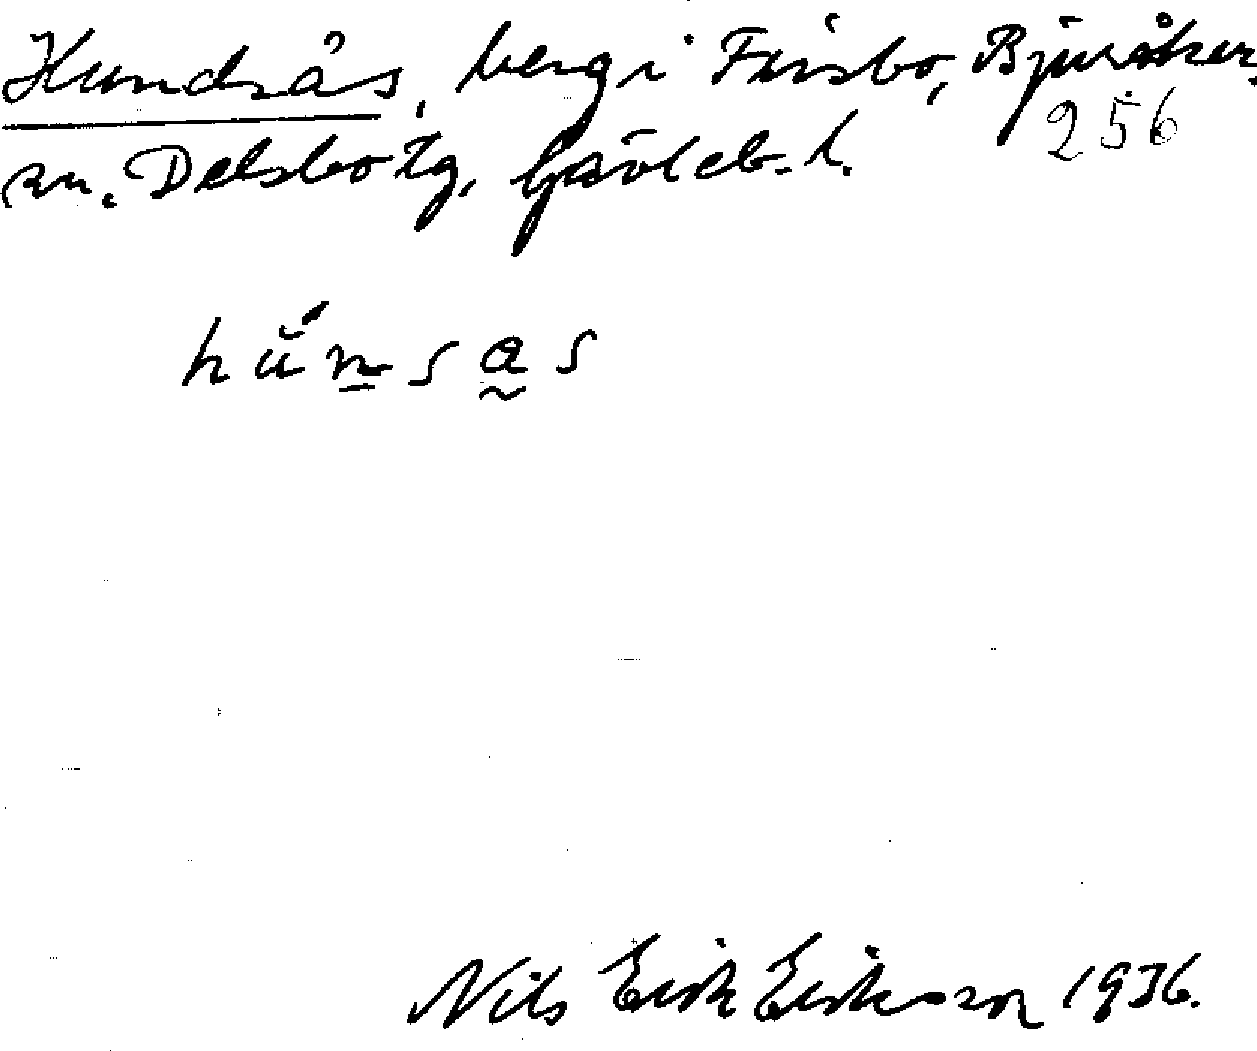 Hundsås, berg i Fürsbo, Bjuråker
256
sn. Delsbo tg, Gävleb. l.
hŭ́nsas
Nils Erik Erikson 1936.